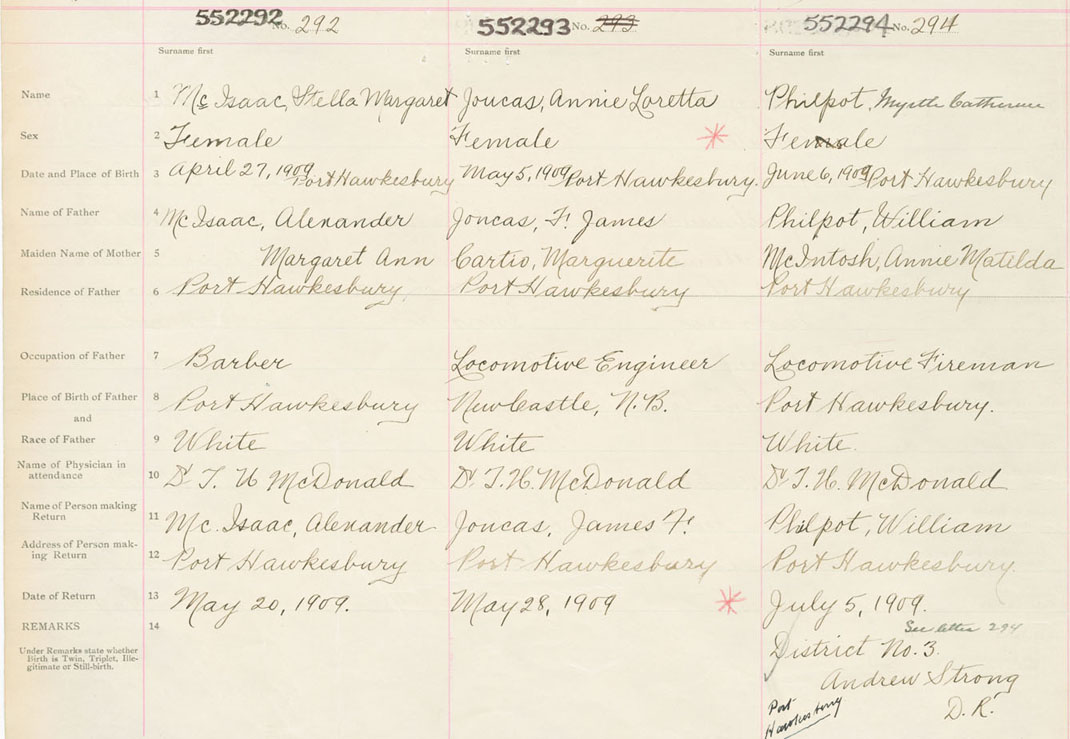 552292 No. 292 552293 No. 293 552294 No. 294
Surname first Surname first Surname first
Name 1 Mc Isaac, Stella Margaret Joucas, Annie Loretta Philpot, Myrtle Catherine
Sex 2 Female Female Female
Date and Place of Birth 3 April 27, 1909 Port Hawkesbury May 5, 1909 Port Hawkesbury. June 6, 1909 Port Hawkesbury
Name of Father 4 Mc Isaac, Alexander Joucas, F. James Philpot, William
Maiden Name of Mother 5 Margaret Ann Cartio, Marguerite McIntosh, Annie Matilda
Residence of Father 6 Port Hawkesbury, Port Hawkesbury Port Hawkesbury
Occupation of Father 7 Barber Locomotive Engineer Locomotive Fireman
Place of Birth of Father 8 Port Hawkesbury NewCastle, N.B. Port Hawkesbury.
and
Race of Father 9 White White White.
Name of Physician in
attendance 10 Dr T. H McDonald Dr T. H. McDonald Dr T. H. McDonald
Name of Person making
Return 11 Mc. Isaac, Alexander Joucas, James F. Philpot, William
Address of Person mak-
ing Return 12 Port Hawkesbury Port Hawkesbury Port Hawkesbury.
Date of Return 13 May 20, 1909. May 28, 1909 July 5, 1909.
REMARKS 14 See letter 294
Under Remarks state whether
Birth is Twin, Triplet, Ille-
gitimate or Still-birth.
District No. 3.
Andrew Strong
D. R.
Port
Hawkesbury